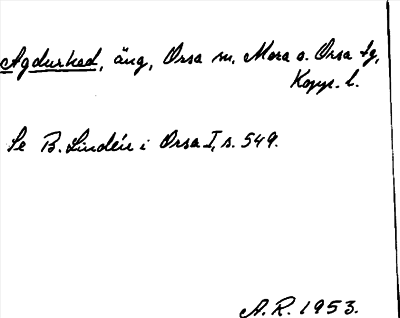 Agdurhed, äng, Orsa sn, Mora o. Orsa tg,
Kopp. l.
Se B. Lindén i Orsa I, s. 549.
A. R. 1953.